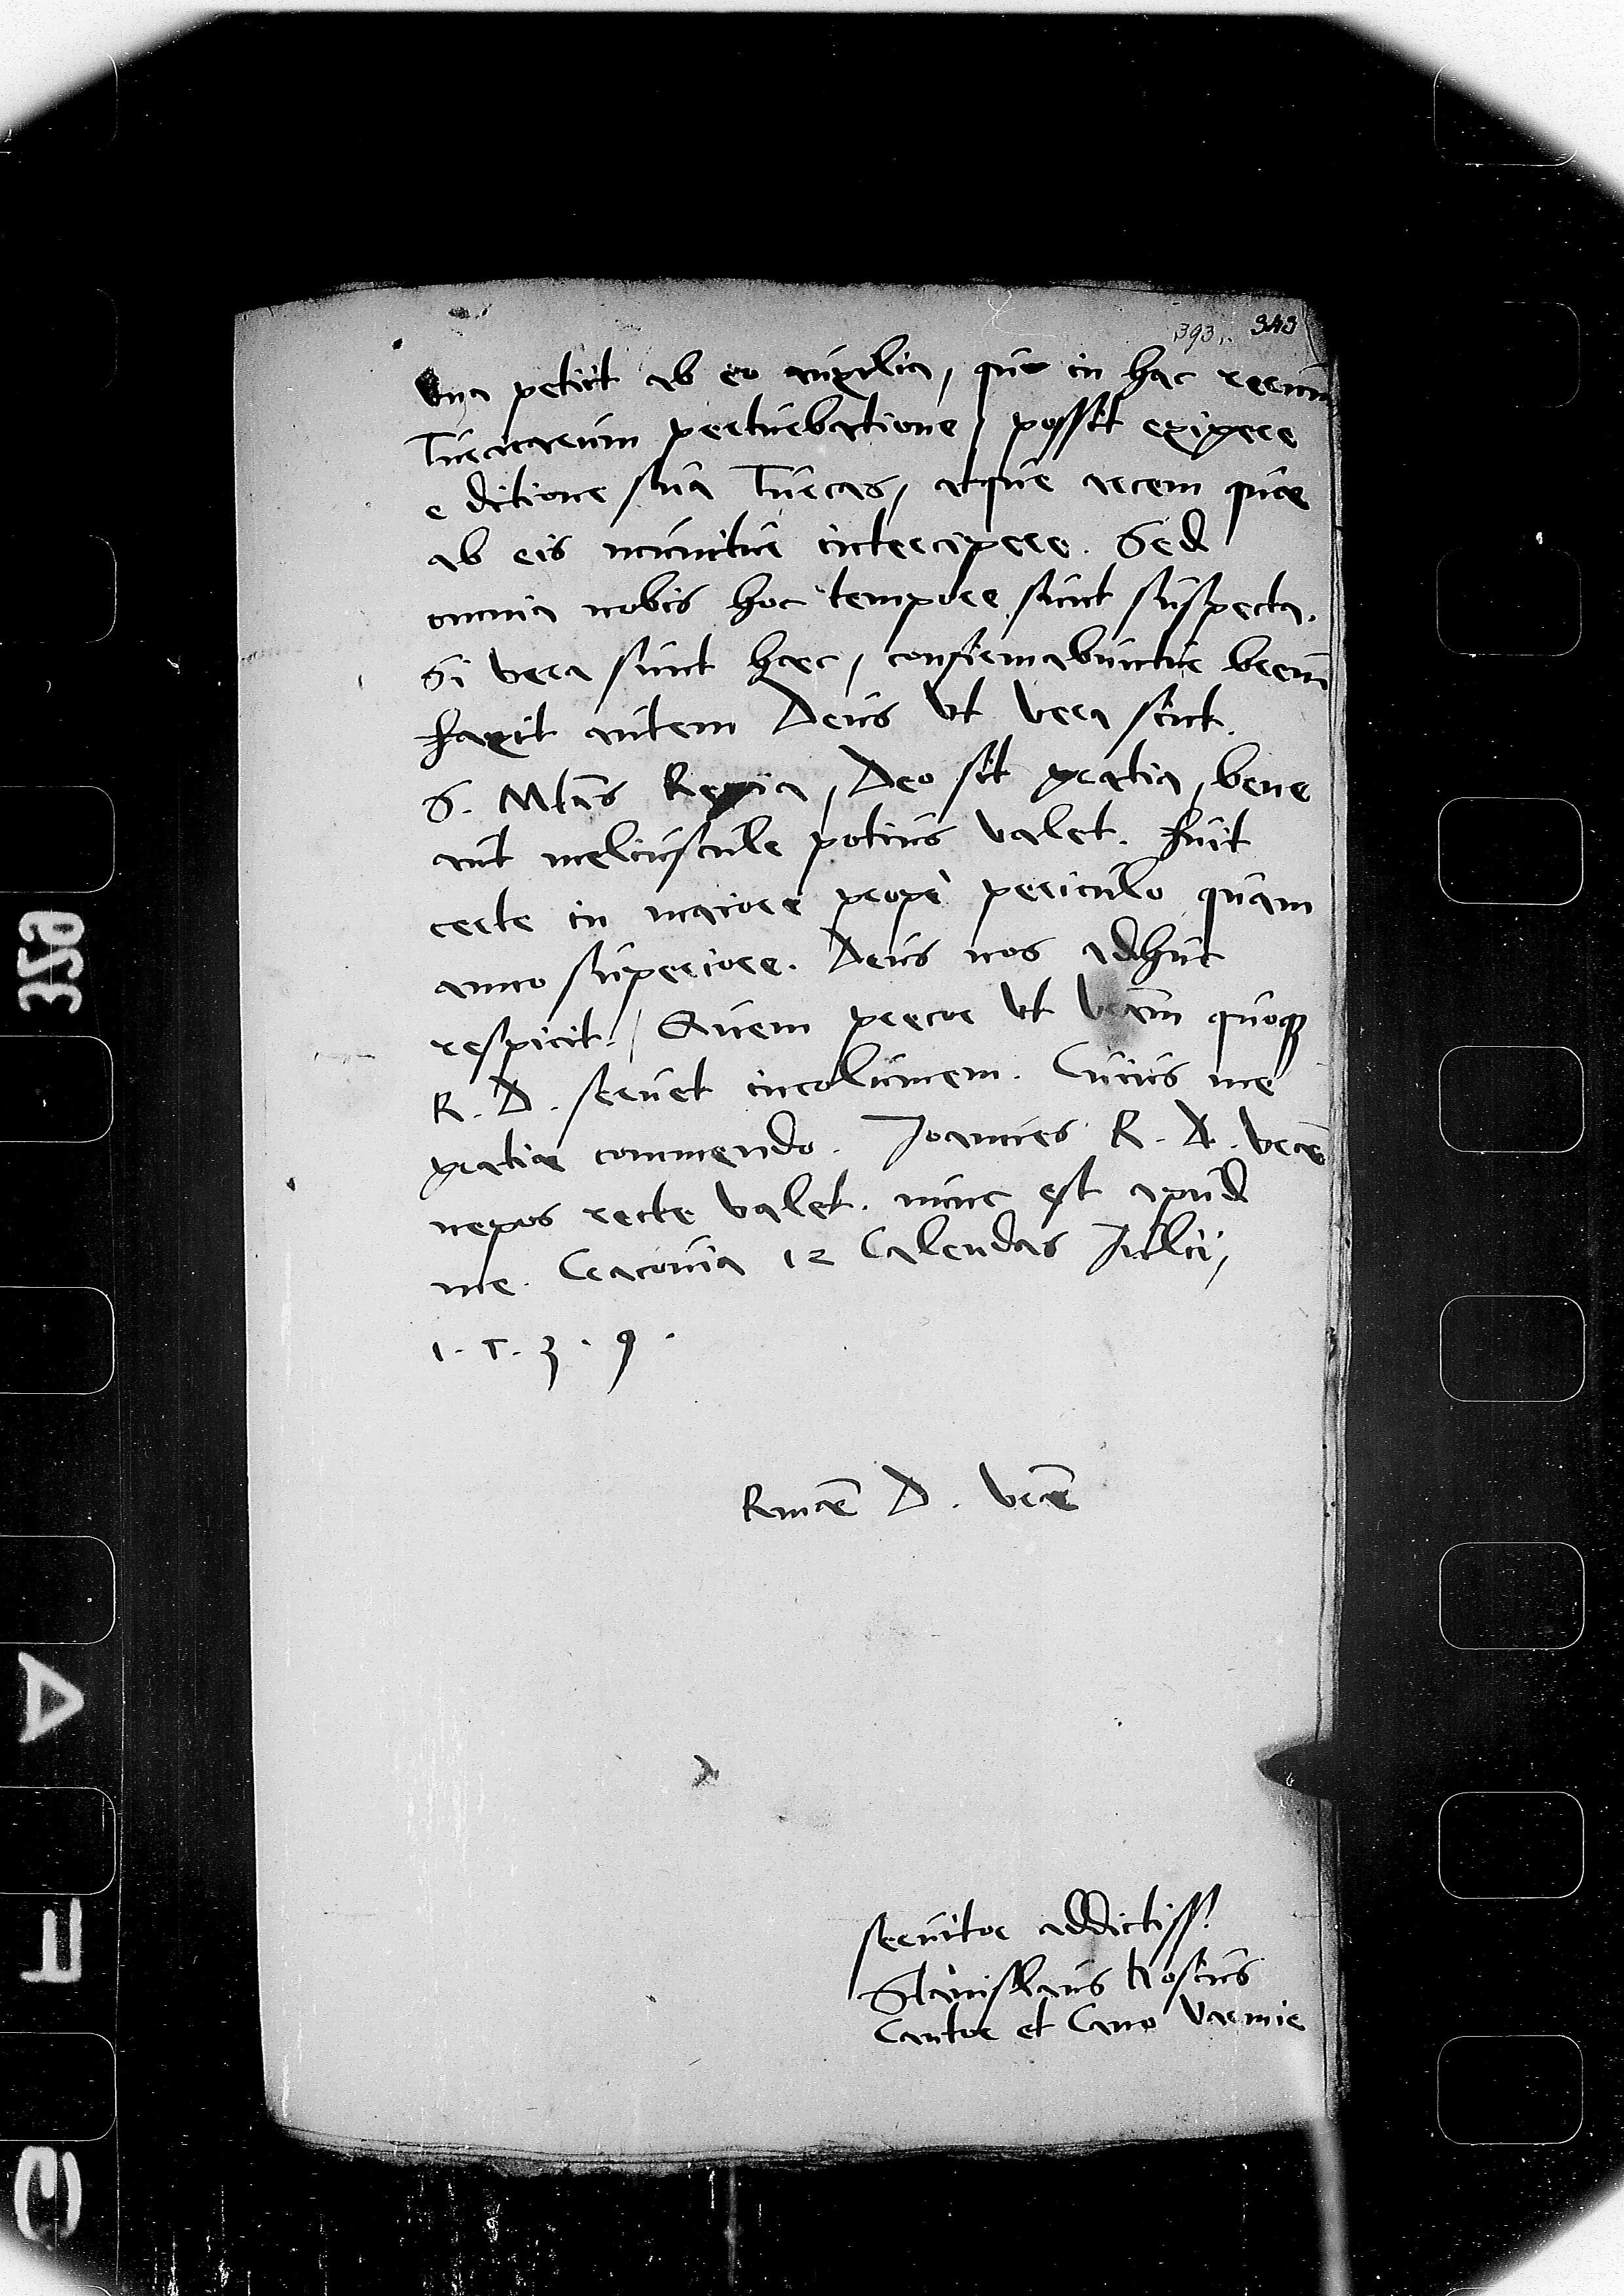 393. 343
Una petiit ab eo auxilia, quo in hac rerum
Turcicarum perturbatione, possit exigere
e ditione sua Turcas, atque arcem quae
ab eis munitur intercipere. Sed
omnia nobis hoc tempore sunt suspecta.
Si vera sunt haec, confirmabuntur brevi
faxit autem Deus ut vera sint.
S. Mtas Regia, Deo sit gratia, bene
aut meliuscule potius valet. Fuit
certe in maiore prope periculo quam
anno superiore. Deus nos adhuc
respicit. Quem precor ut quoque
R. D. servet incolumem. Cuius me
gratiae commendo. Joannes R. D. Vrae
nepos recte valet. nunc est apud
me. Cracovia 12 Calendas Julii,
1.5.3.9.
Rmae D. Vrae
servitor addictiss.
Stanislaus Hosius
Cantor et Cano Varmien
329
A